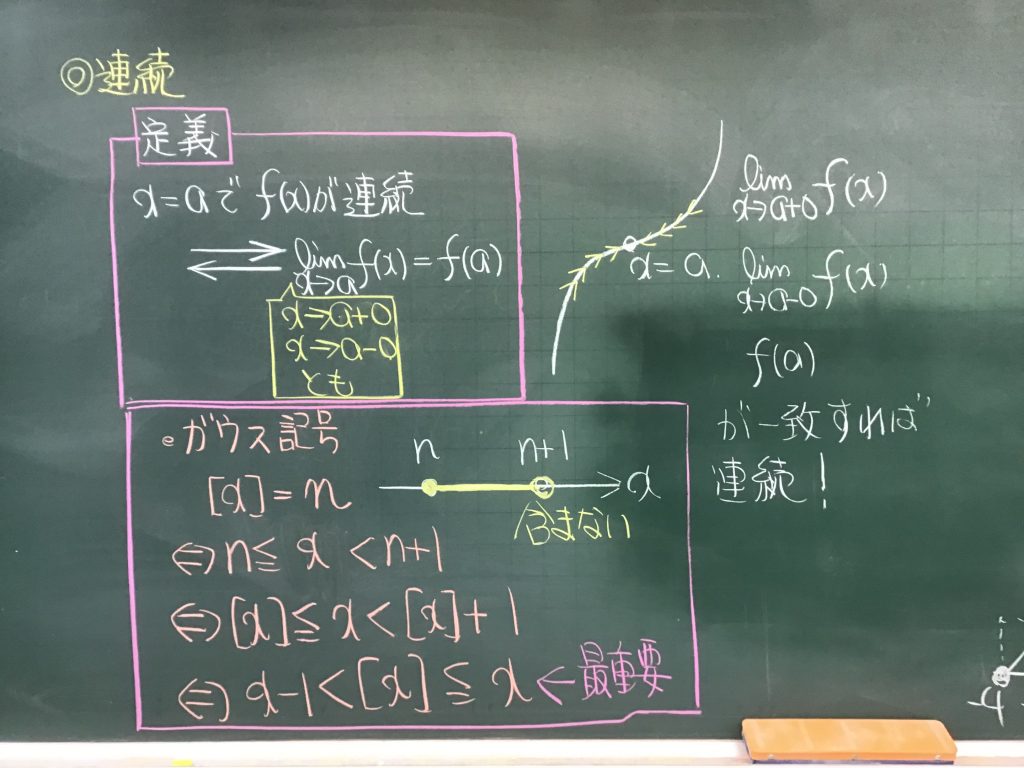 ◎連続
定義
x=aでf(x)が連続
⇄ lim x→a f(x)=f(a)
x→a+0
x→a-0
とも
x=a.
lim x→a+0 f(x)
lim x→a-0 f(x)
f(a)
が一致すれば
連続!
ガウス記号
[x]=n
n n+1 x
含まない
⇔n≦x<n+1
⇔[x]≦x<[x]+1
⇔x-1<[x]≦x←最重要
-4